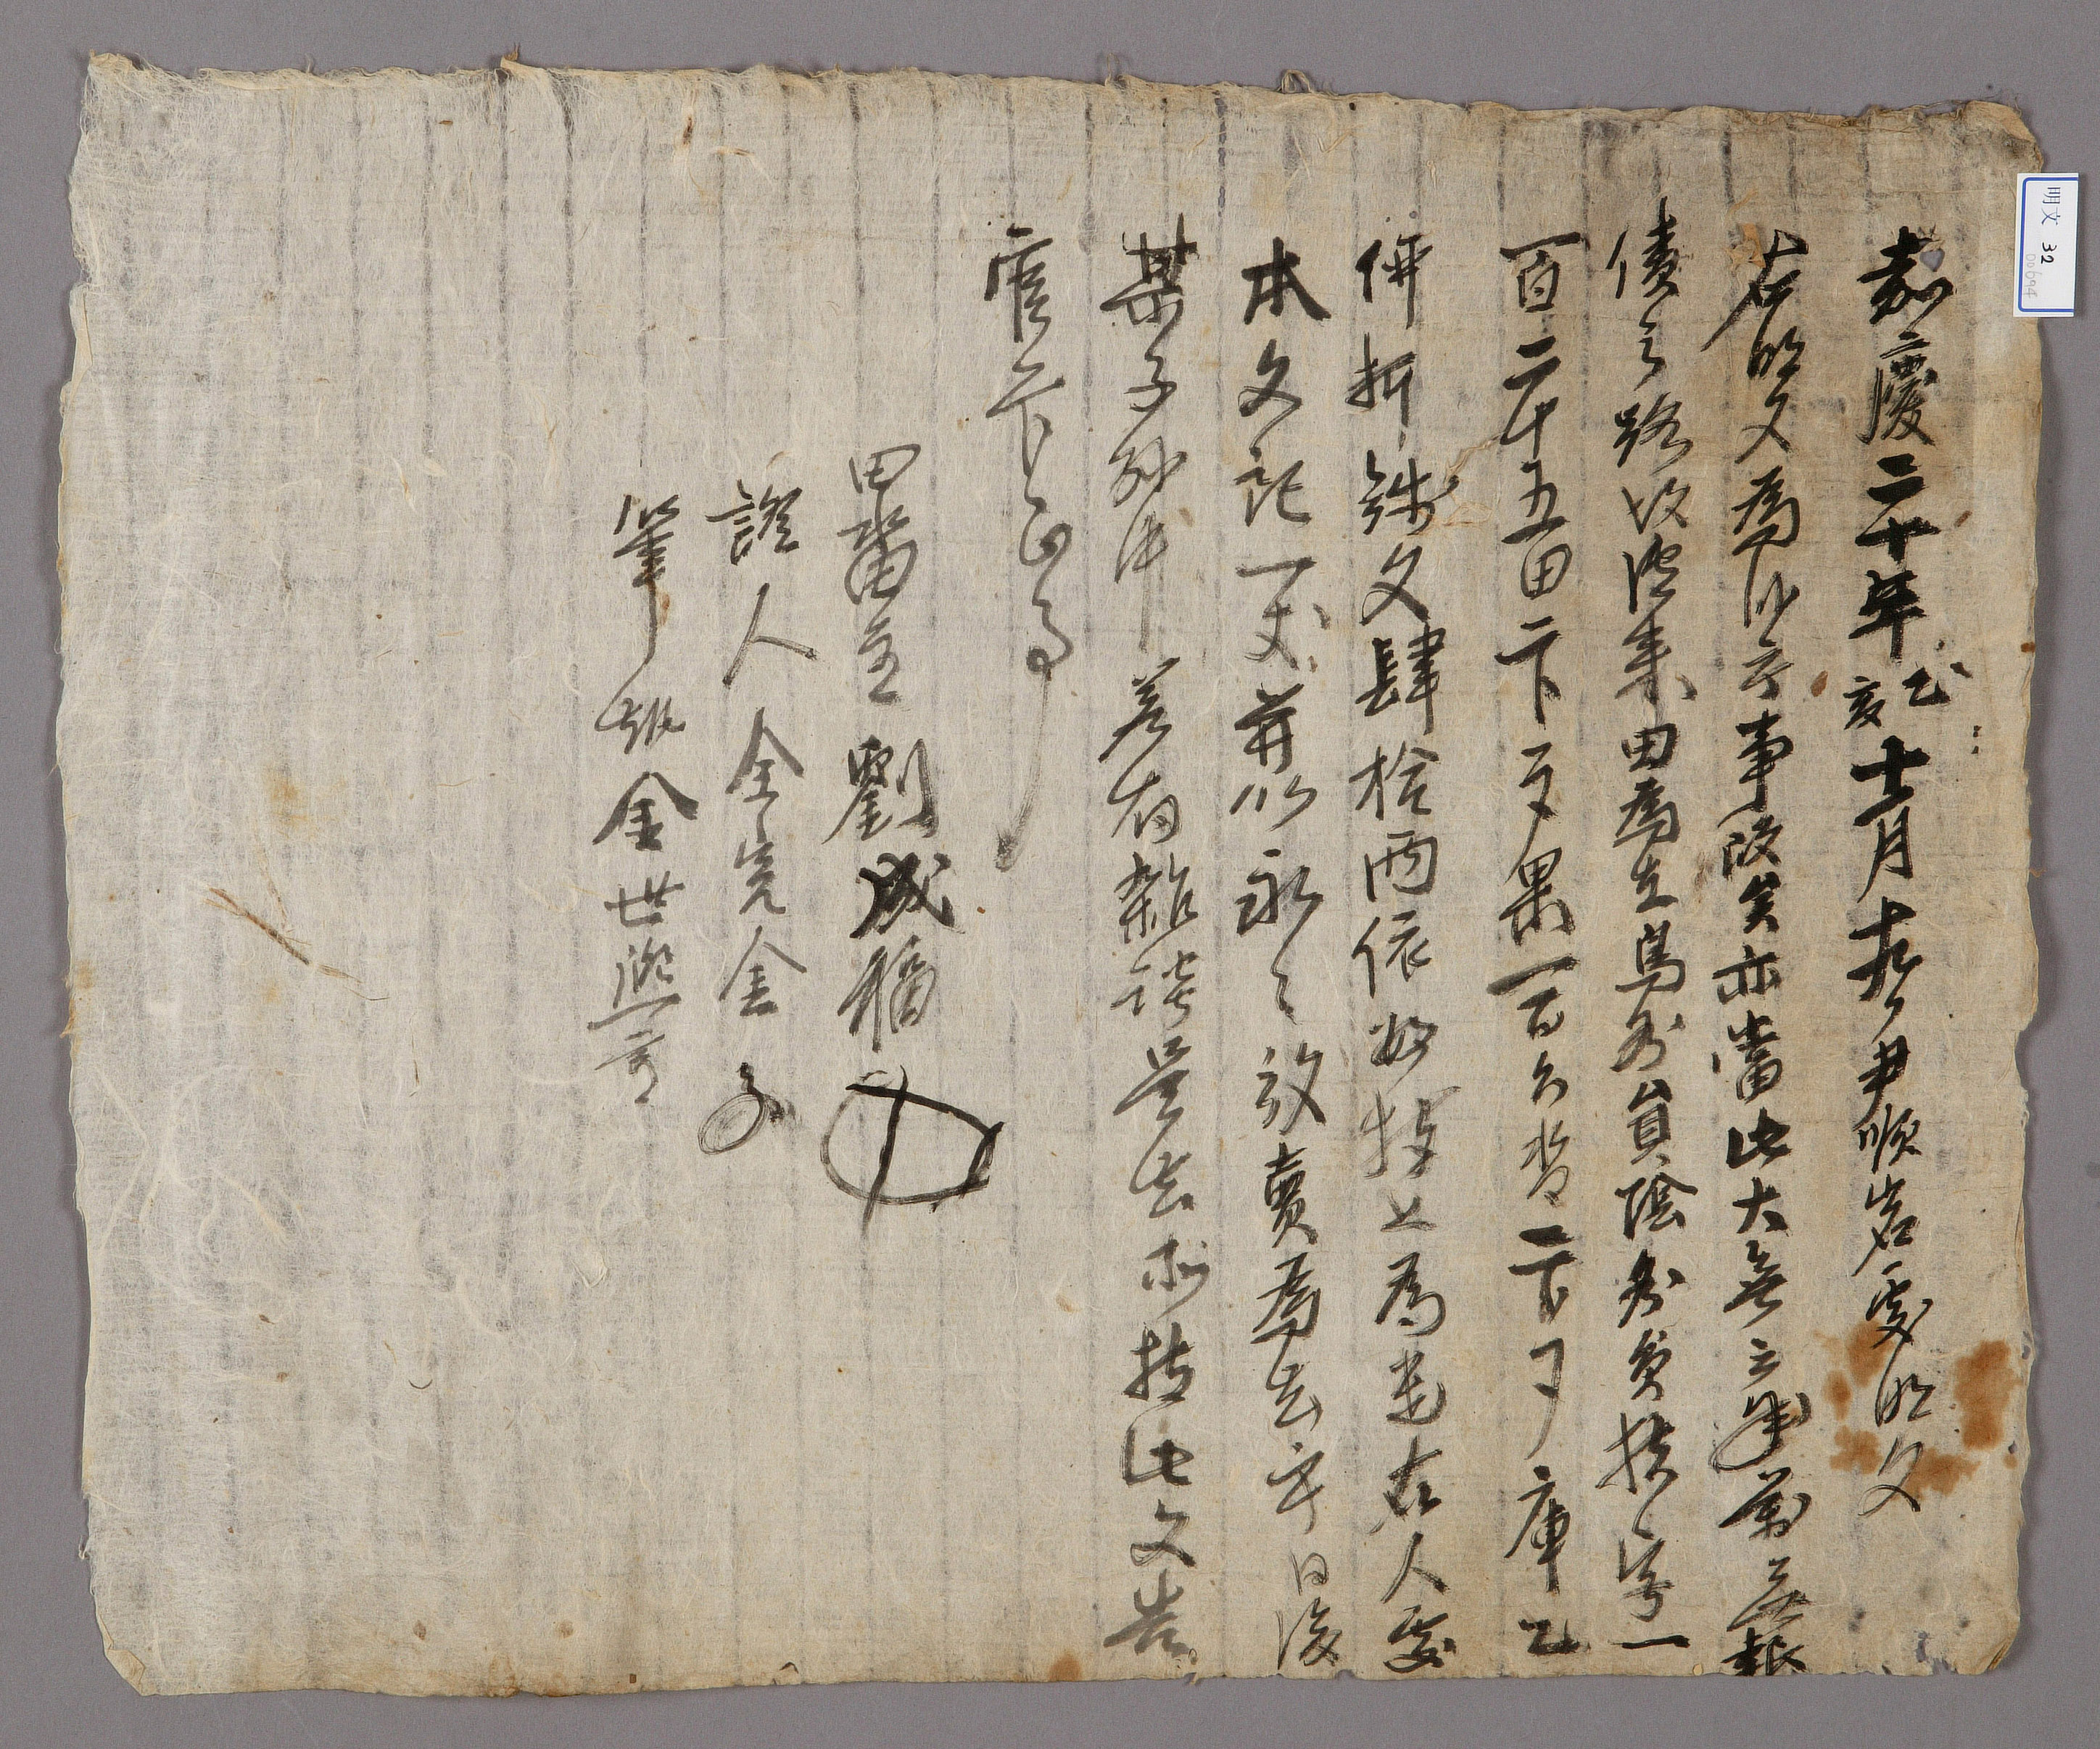 嘉慶二十年乙亥十二月十九日尹順岩處明文
右明文爲臥乎事段矣亦當此大無之年萬無報
債之路以流來田爲在鳥外員陰外負扶字一
百二十五田二卜五束果一百六畓二卜丁庫乙
併折錢文肆拾兩依數捧上爲遣右人處
本文記一丈幷以永〻放賣爲去乎日後
某子孫中若有雜談是去等持此文告
官卞正事
田畓主劉成福
證人全完金
筆執金世興
明文 32
00694